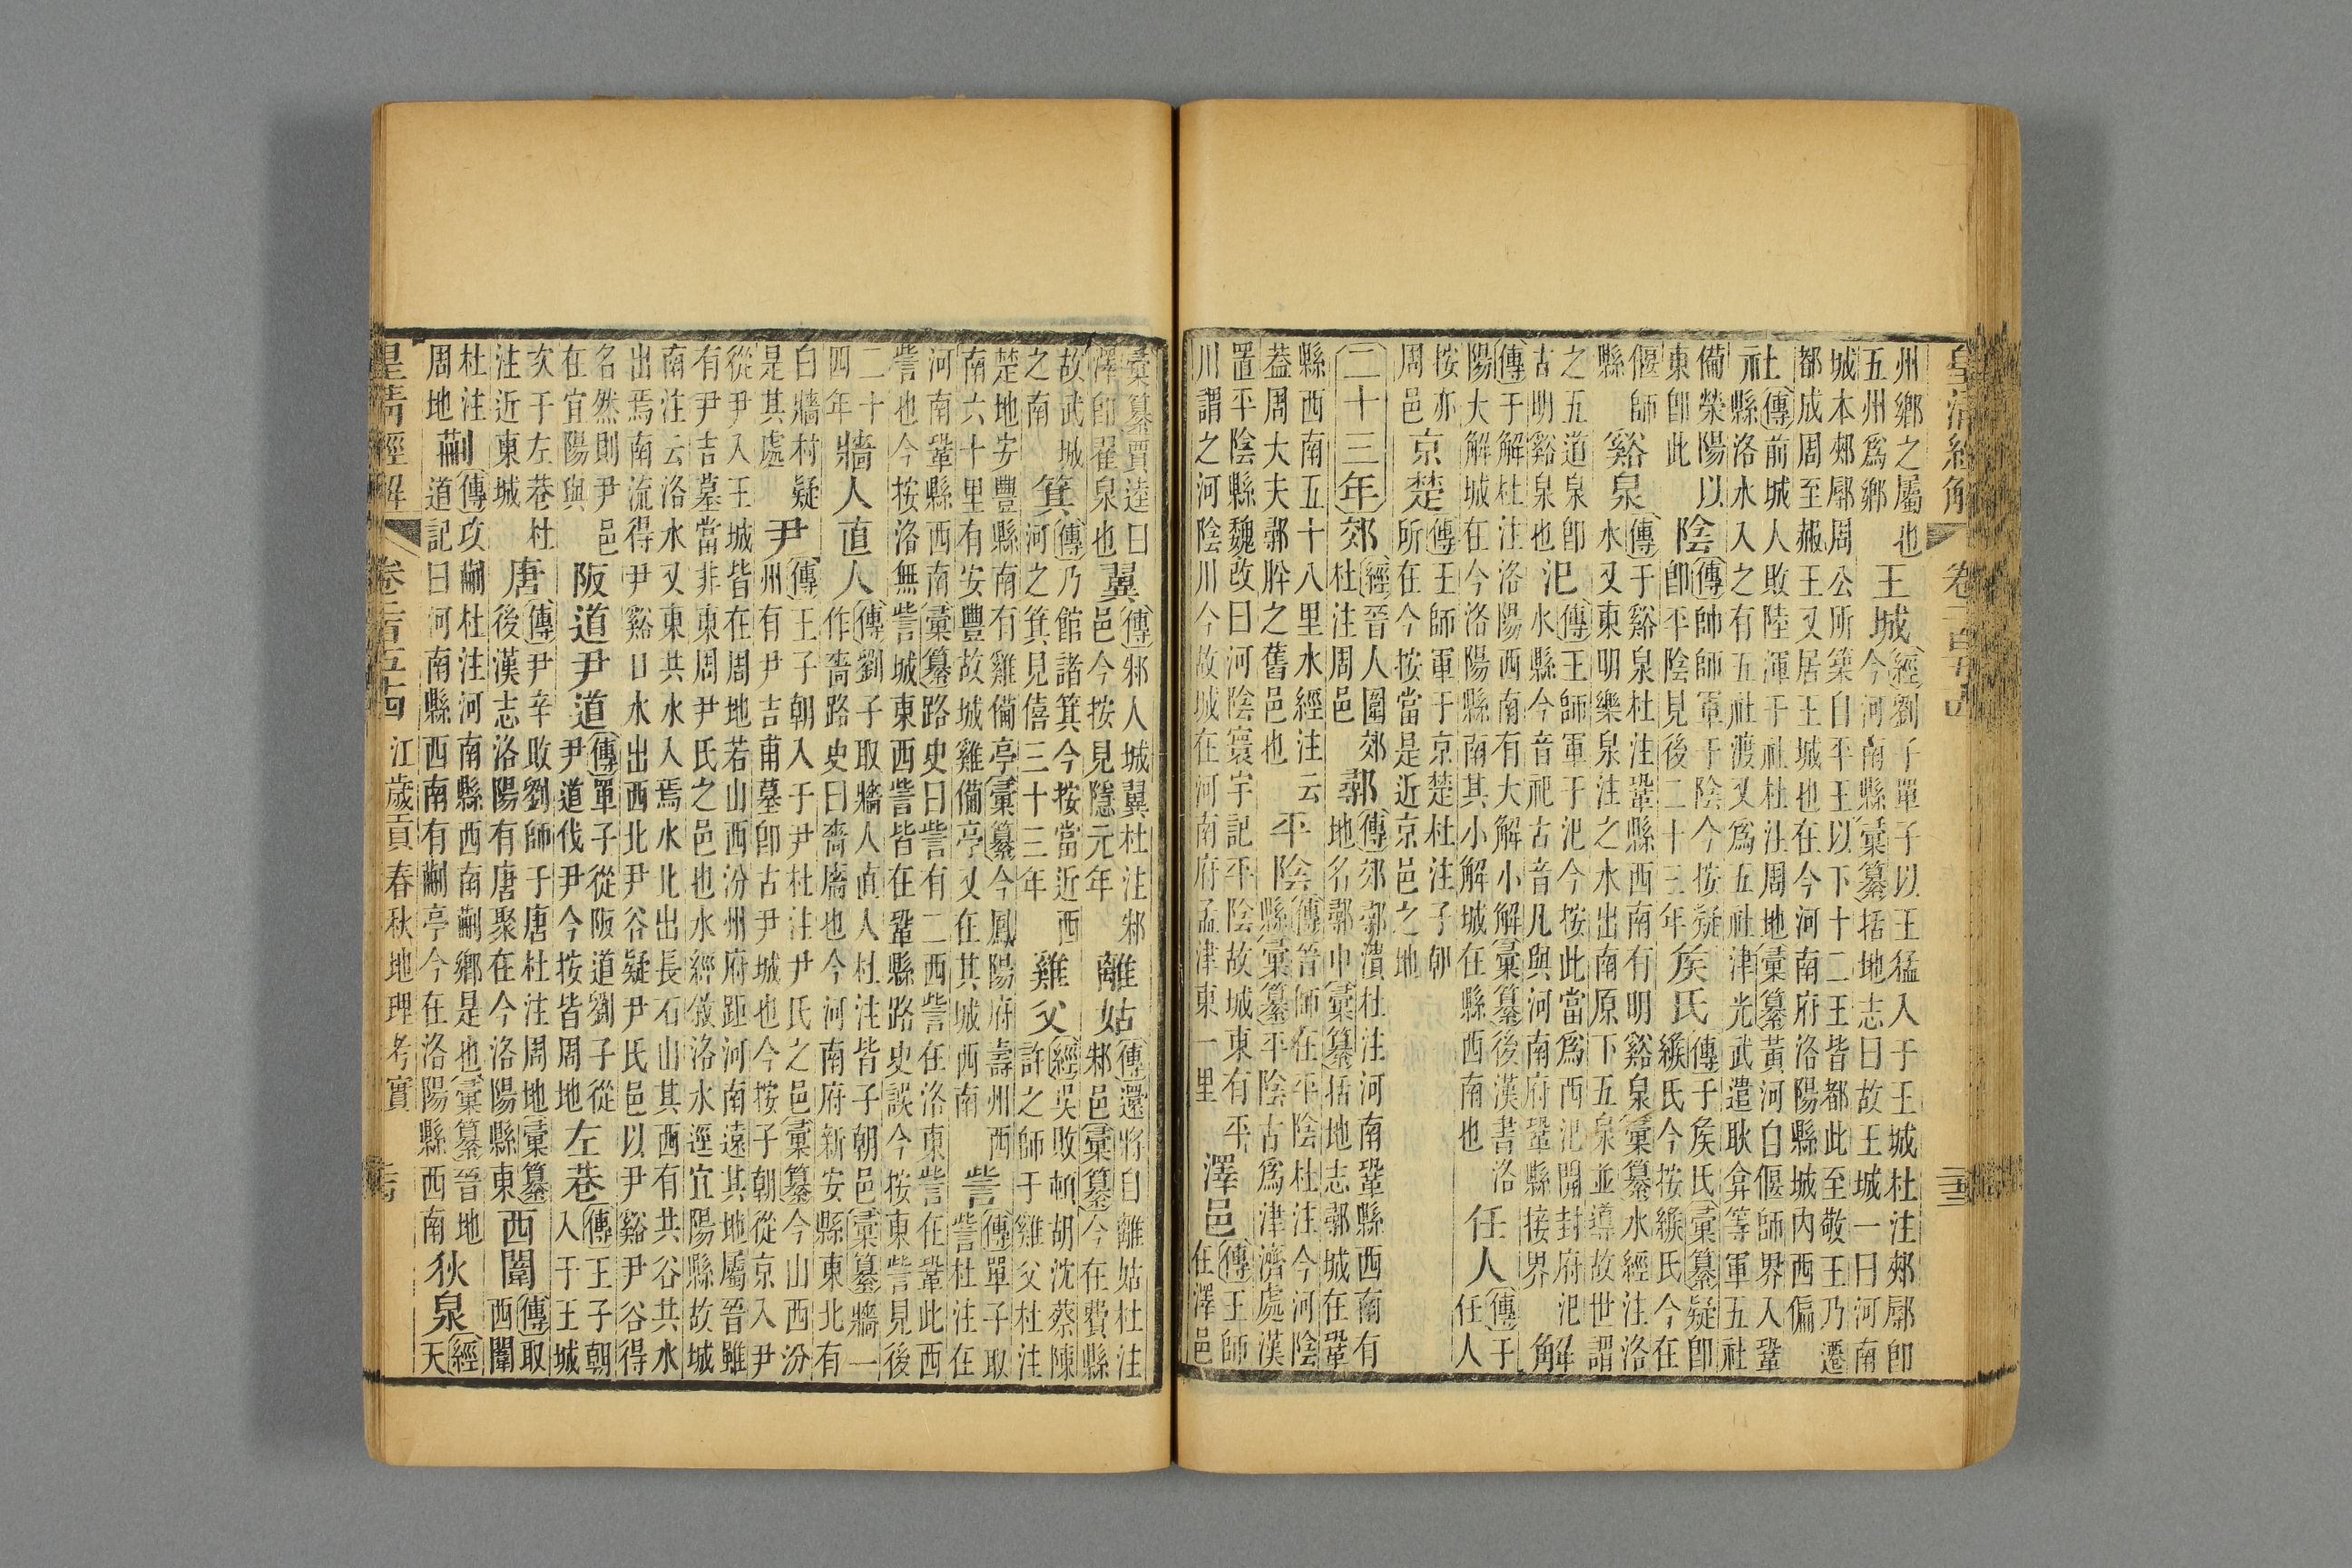 皇清經解 卷二百五十四
州鄉之屬也五州爲鄉王城經劉子單子以王猛入于王城杜注郟鄏卽今河南縣彙纂括地志曰故王城一曰河南
城本郟鄏周公所築自平王以下十二王皆都此至敬王乃遷都成周至赧王又居王城也在今河南府洛陽縣城內西偏
社傳前城人敗陸渾于社杜注周地彙纂黃河自偃師界入鞏縣洛水入之有五社渡又爲五社津光武遣耿弇等軍五社
備滎陽以東卽此陰傳帥師軍于陰今按疑卽平陰見後二十三年矦氏傳于矦氏彙纂疑卽緱氏今按緱氏今在
偃師縣谿泉傳于谿泉杜注鞏縣西南有明谿泉彙纂水經注洛水又東明樂泉注之水出南原下五泉並導故世謂
之五道泉卽古明谿泉也氾傳王師軍于氾今按此當爲西氾開封府氾水縣今音祀古音凡與河南府鞏縣接界解
傳于解杜注洛陽西南有大解小解彙纂後漢書洛陽大解城在今洛陽縣南其小解城在縣西南也任人傳于任人
按亦周邑京楚傳王師軍于京楚杜注子朝所在今按當是近京邑之地
二十三年郊經晉人圍郊杜注周邑鄩傳郊鄩潰杜注河南鞏縣西南有地名鄩中彙纂括地志鄩城在鞏
縣西南五十八里水經注云葢周大夫鄩肸之舊邑也平陰傳晉師在平陰杜注今河陰縣彙纂平陰古爲津濟處漢
置平陰縣魏改曰河陰寰宇記平陰故城東有平川謂之河陰川今故城在河南府孟津東一里澤邑傳王師在澤邑
彙纂賈逵曰澤卽翟泉也翼傳邾人城翼杜注邾邑今按見隱元年離姑傳還將自離姑杜注邾邑彙纂今在費縣
故武城之南箕傳乃館諸箕今按當近西河之箕見僖三十三年雞父經吳敗頓胡沈蔡陳許之師于雞父杜注
楚地安豐縣南有雞備亭彙纂今鳳陽府壽州西南六十里有安豐故城雞備亭又在其城西南訾傳單子取訾杜注在
河南鞏縣西南彙纂路史曰訾有二西訾在洛東訾在鞏此西訾也今按洛無訾城東西訾皆在鞏縣路史誤今按東訾見後
二十四年牆人直人傳劉子取牆人直人杜注皆子朝邑彙纂牆一作嗇路史曰嗇廧也今河南府新安縣東北有
白牆村疑是其處尹傳王子朝入于尹杜注尹氏之邑彙纂今山西汾州有尹吉甫墓卽古尹城也今按子朝從京入尹
從尹入王城皆在周地若山西汾州府距河南遠其地屬晉雖有尹吉墓當非東周尹氏之邑也水經敘洛水逕宜陽縣故城
南注云洛水又東共水入焉水北出長石山其西有共谷共水出焉南流得尹谿口水出西北尹谷疑尹氏邑以尹谿尹谷得
名然則尹邑在宜陽與阪道尹道傳單子從阪道劉子從尹道伐尹今按皆周地左巷傳王子朝入于王城
次于左巷杜注近東城唐傳尹辛敗劉師于唐杜注周地彙纂後漢志洛陽有唐聚在今洛陽縣東西闈傳取西闈
杜注周地蒯傳攻蒯杜注河南縣西南蒯鄉是也彙纂晉地道記曰河南縣西南有蒯亭今在洛陽縣西南狄泉經天
皇清經解 卷二百五十四 江歲貢春秋地理考實